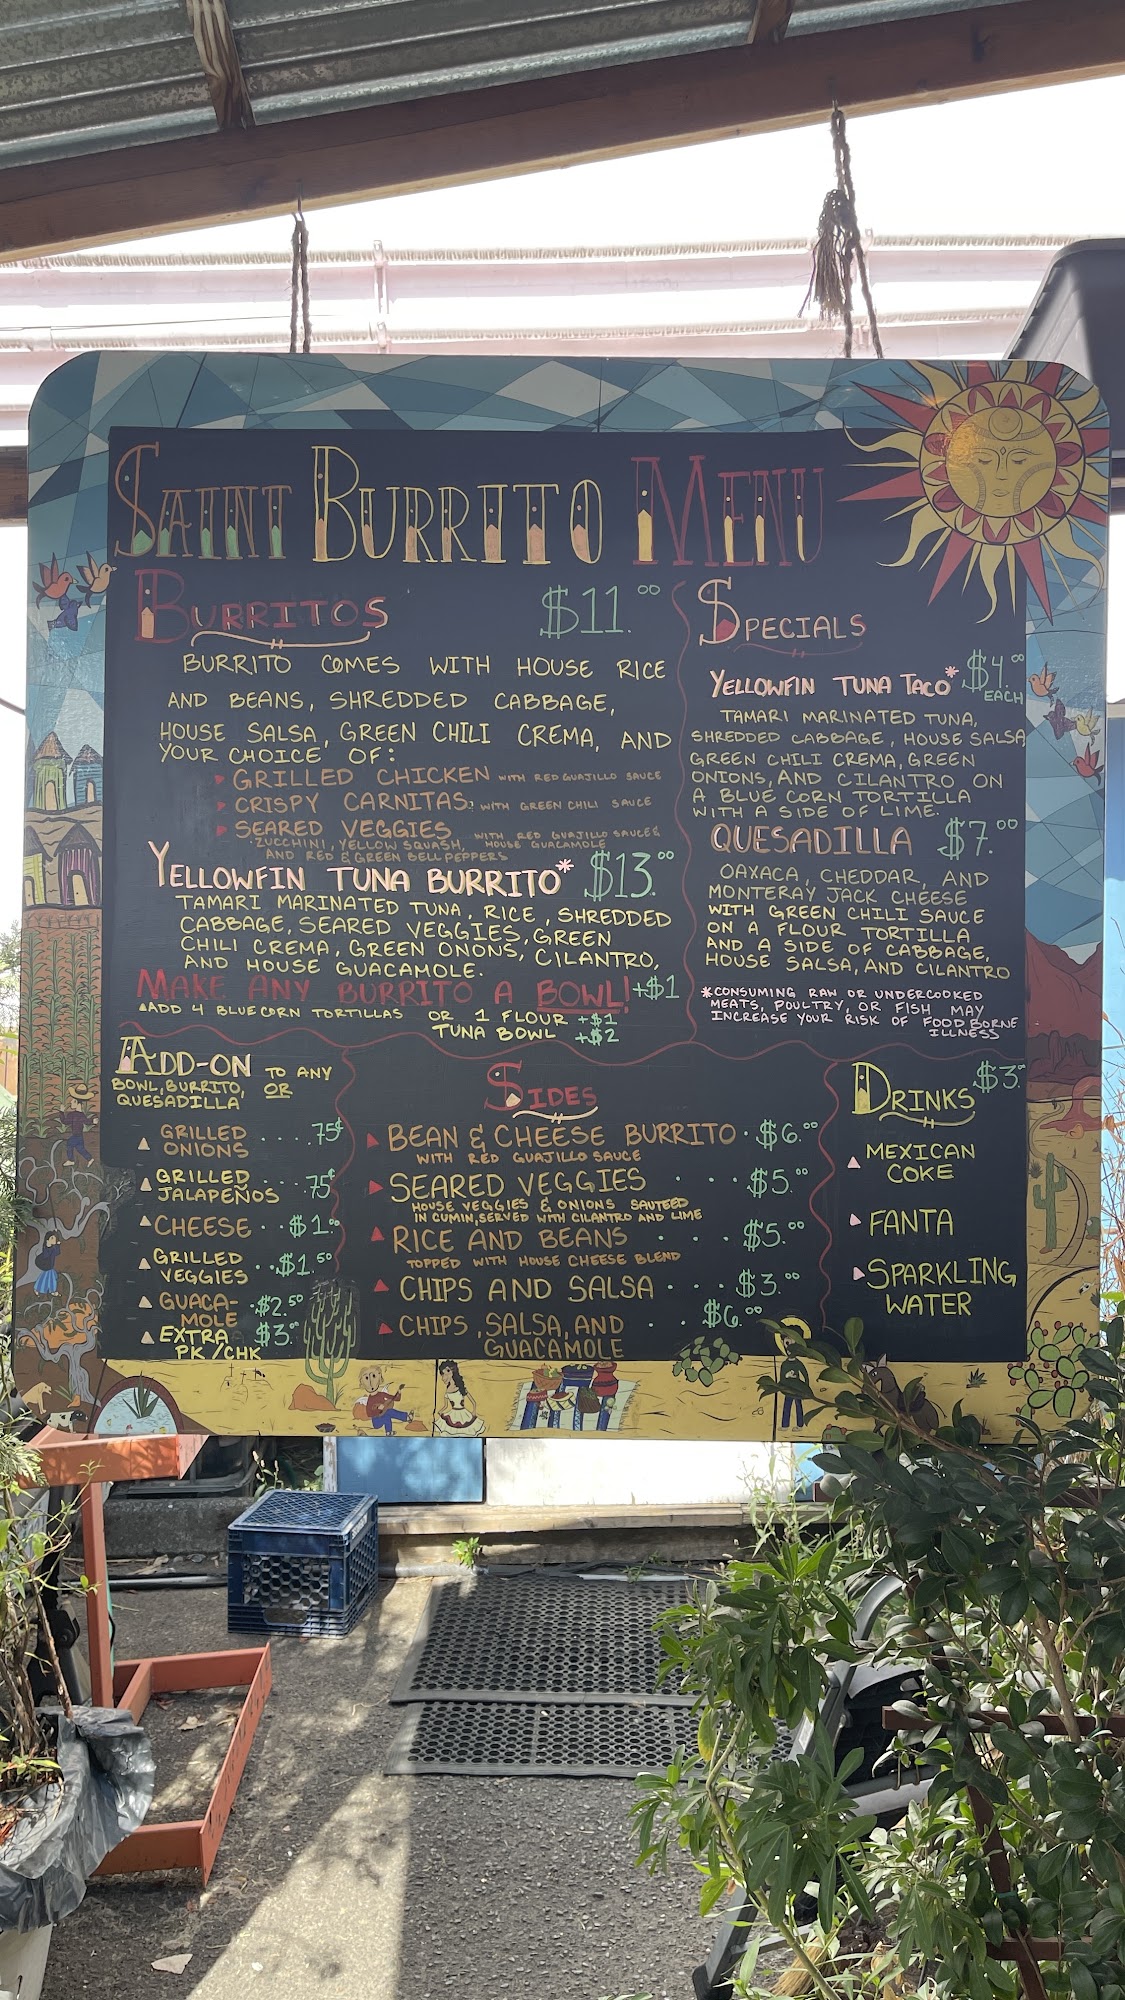 SAINT BURRITO MENU
BURRITOS $11.00
BURRITO COMES WITH HOUSE RICE
AND BEANS, SHREDDED CABBAGE,
HOUSE SALSA, GREEN CHILI CREMA, AND
YOUR CHOICE OF:
GRILLED CHICKEN WITH RED GUAJILLO SAUCE
CRISPY CARNITAS, WITH GREEN CHILI SAUCE
SEARED VEGGIES WITH RED GUAJILLO SAUCE &
ZUCCHINI, YELLOW SQUASH, HOUSE GUACAMOLE
AND RED & GREEN BELL PEPPERS
YELLOWFIN TUNA BURRITO* $13.00
TAMARI MARINATED TUNA, RICE, SHREDDED
CABBAGE, SEARED VEGGIES, GREEN
CHILI CREMA, GREEN ONONS, CILANTRO,
AND HOUSE GUACAMOLE.
MAKE ANY BURRITO A BOWL! +$1
ADD 4 BLUE CORN TORTILLAS OR 1 FLOUR +$1
TUNA BOWL +$2
SPECIALS
YELLOWFIN TUNA TACO* $4.00
EACH
TAMARI MARINATED TUNA,
SHREDDED CABBAGE, HOUSE SALSA
GREEN CHILI CREMA, GREEN
ONIONS, AND CILANTRO ON
A BLUE CORN TORTILLA
WITH A SIDE OF LIME.
QUESADILLA $7.00
OAXACA, CHEDDAR, AND
MONTERAY JACK CHEESE
WITH GREEN CHILI SAUCE
ON A FLOUR TORTILLA
AND A SIDE OF CABBAGE,
HOUSE SALSA, AND CILANTRO
*CONSUMING RAW OR UNDERCOOKED
MEATS, POULTRY, OR FISH MAY
INCREASE YOUR RISK OF FOOD BORNE
ILLNESS
ADD-ON TO ANY
BOWL, BURRITO, OR
QUESADILLA
GRILLED
ONIONS .... 75¢
GRILLED
JALAPEÑOS ... 75¢
CHEESE .. $1.00
GRILLED
VEGGIES .. $1.50
GUACA-
MOLE . $2.50
EXTRA $3.00
PK/CHK
SIDES
BEAN & CHEESE BURRITO . $6.00
WITH RED GUAJILLO SAUCE
SEARED VEGGIES ... $5.00
HOUSE VEGGIES & ONIONS SAUTEED
IN CUMIN, SERVED WITH CILANTRO AND LIME
RICE AND BEANS ... $5.00
TOPPED WITH HOUSE CHEESE BLEND
CHIPS AND SALSA ... $3.00
CHIPS, SALSA, AND .. $6.00
GUACAMOLE
DRINKS $3.00
MEXICAN
COKE
FANTA
SPARKLING
WATER